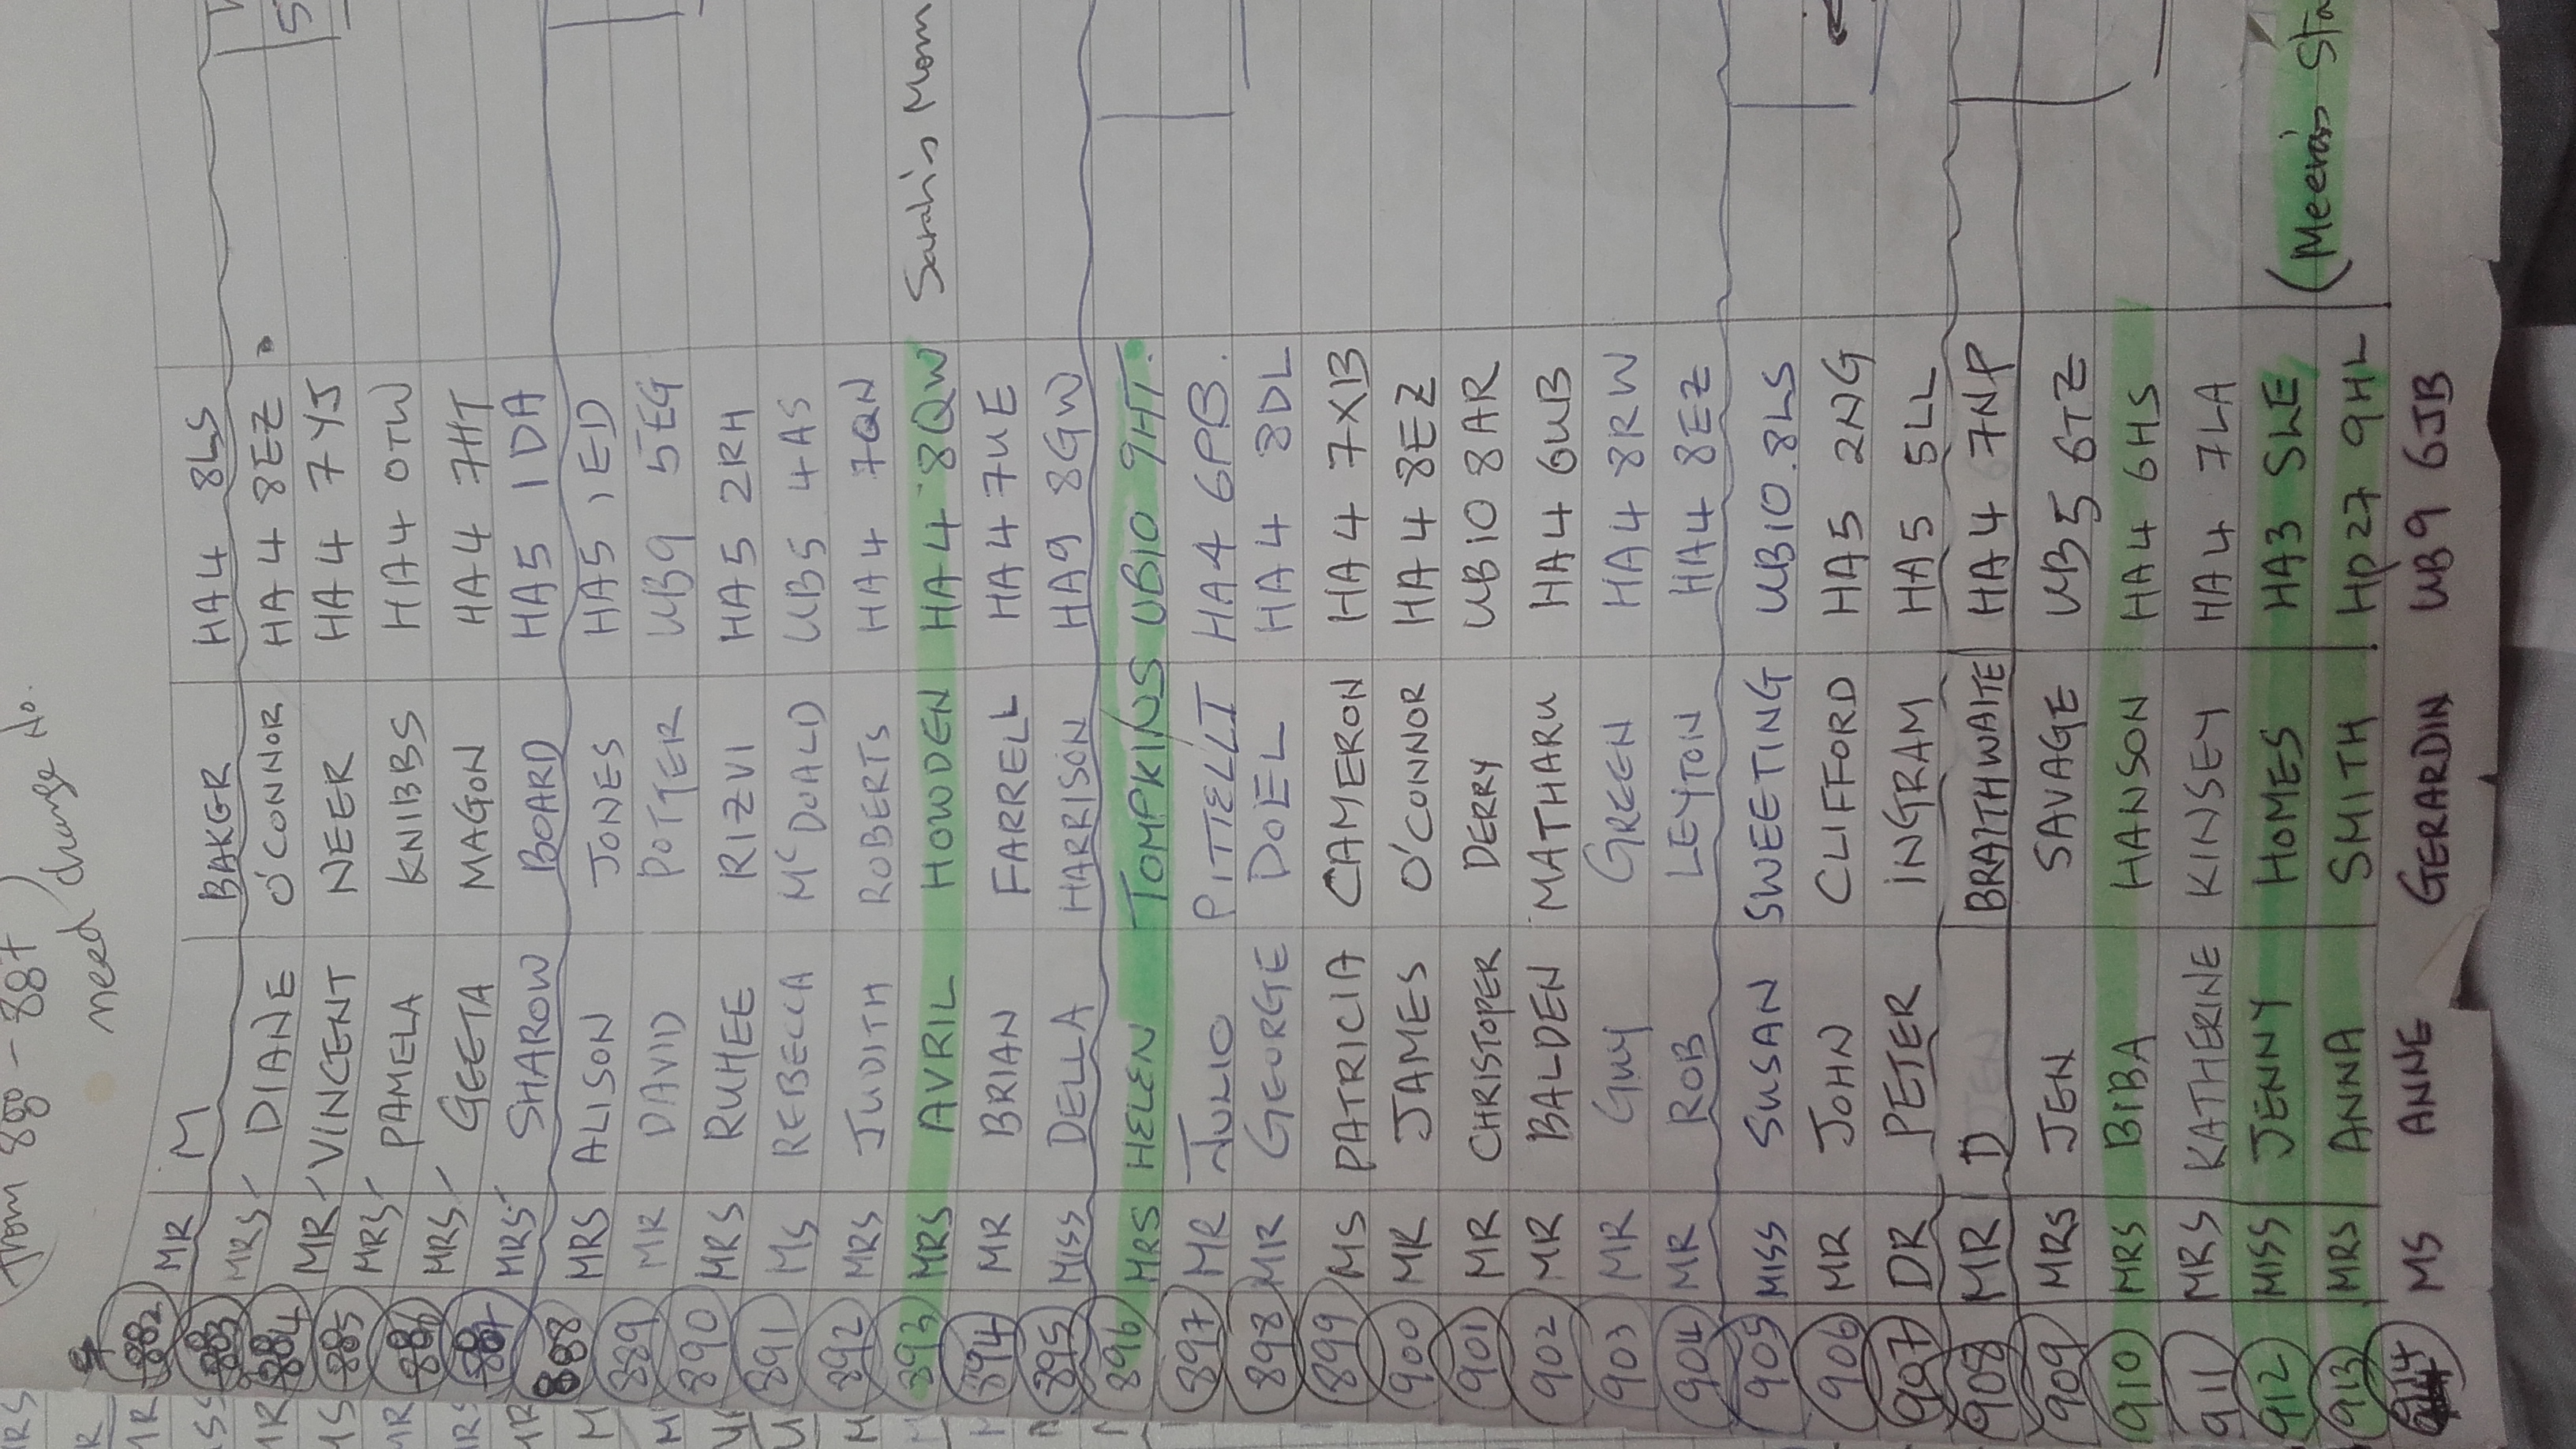 (from 880 - 887)
need change No.
882 MR M BAKER HA4 8LS
883 MRS DIANE O'CONNOR HA4 8EZ
884 MR VINCENT NEER HA4 7YJ
885 MRS PAMELA KNIBBS HA4 0TW
886 MRS GEETA MAGON HA4 7HT
887 MRS SHAROW BOARD HA5 1DA
888 MRS ALISON JONES HA5 1ED
889 MR DAVID POTTER UB9 5EG
890 MRS RUHEE RIZVI HA5 2RH
891 MS REBECCA McDUALD UB5 4AS
892 MRS JUDITH ROBERTS HA4 7QN
893 MRS AVRIL HOWDEN HA4 8QW Sarah's Mom
894 MR BRIAN FARRELL HA4 7UE
895 MISS DELLA HARRISON HA9 8GW
896 MRS HELEN TOMPKINS UB10 9HT.
897 MR JULIO PITTELLI HA4 6PB.
898 MR GEORGE DOEL HA4 8DL
899 MS PATRICIA CAMERON HA4 7XB
900 MR JAMES O'CONNOR HA4 8EZ
901 MR CHRISTOPER DERRY UB10 8AR
902 MR BALDEN MATHARU HA4 6UB
903 MR GUY GREEN HA4 8RW
904 MR ROB LEYTON HA4 8EZ
905 MISS SUSAN SWEETING UB10.8LS
906 MR JOHN CLIFFORD HA5 2NG
907 DR PETER INGRAM HA5 5LL
908 MR D BRAITHWAITE HA4 7NP
909 MRS JEN SAVAGE UB5 6TZ
910 MRS BIBA HANSON HA4 6HS
911 MRS KATHERINE KINSEY HA4 7LA
912 MISS JENNY HOMES HA3 5LE (Meera's Sta
913 MRS ANNA SMITH HP27 9HL
914 MS ANNE GERARDIN UB9 6JB